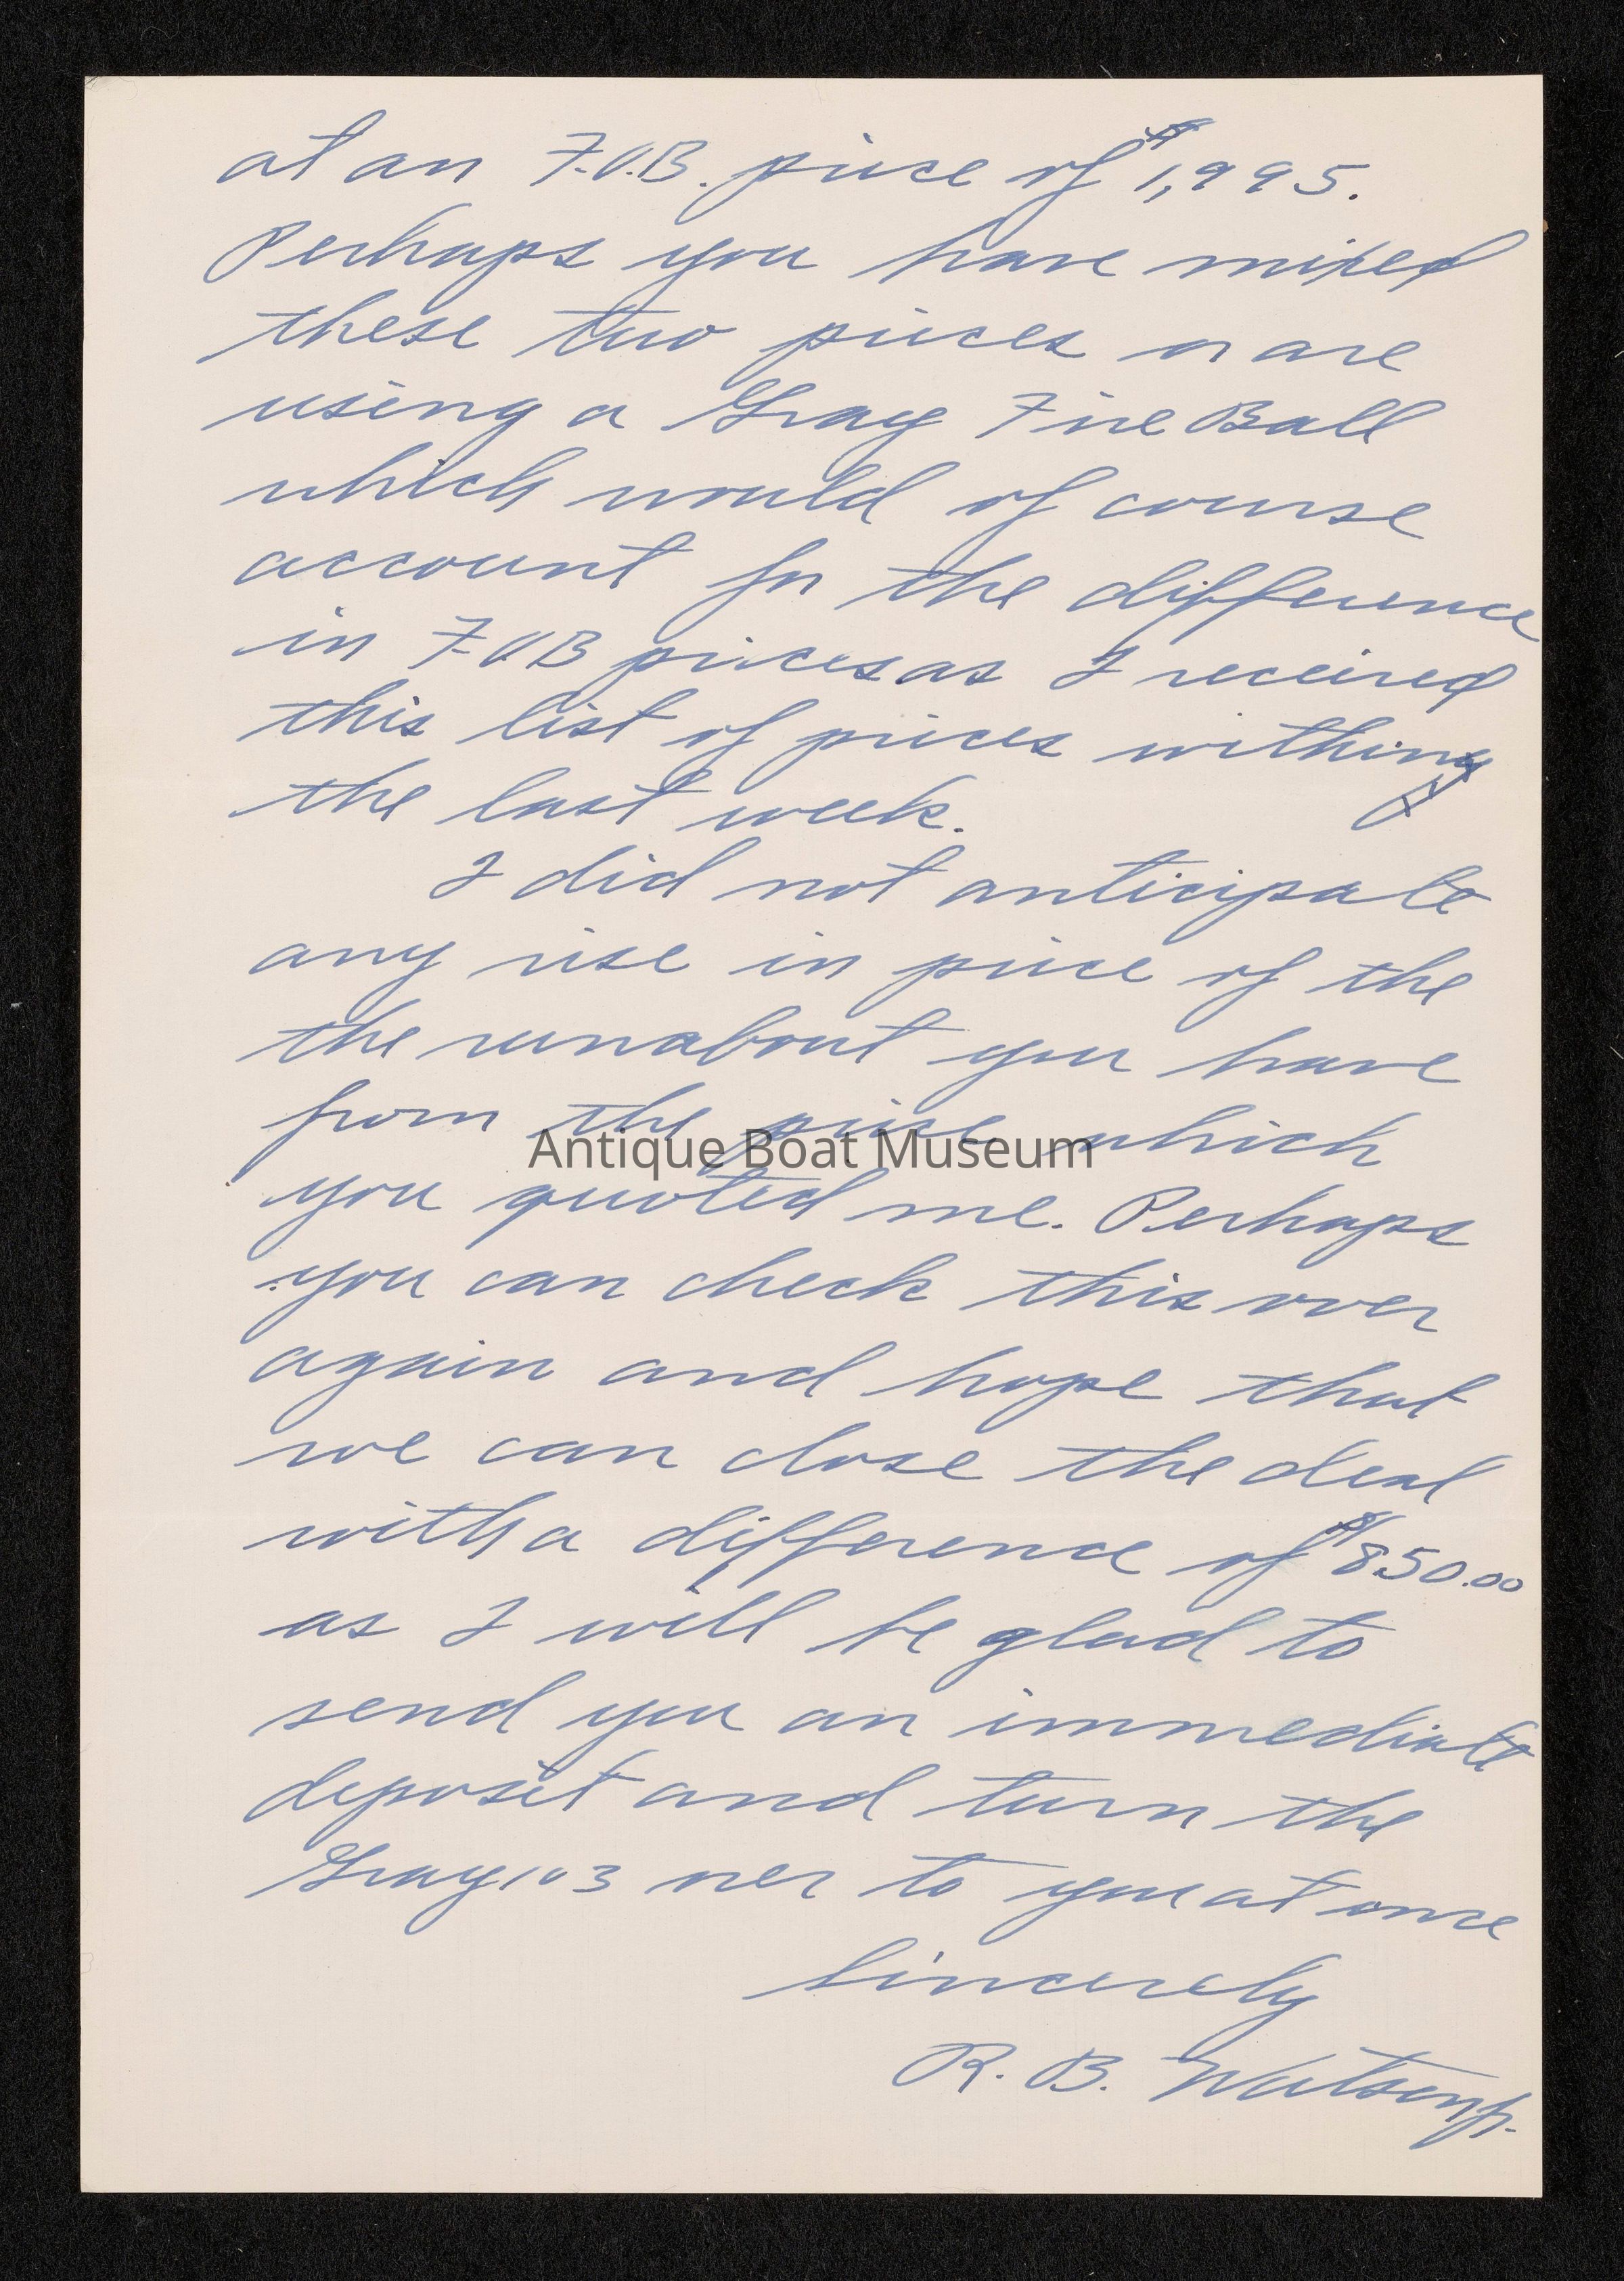 at an F.O.B. price of $1,995.
Perhaps you have mixed
these two prices or are
using a Gray Fire Ball
which would of course
account for the difference
in F.O.B prices as I received
this list of prices within
the last week.
I did not anticipate
any rise in price of the
the runabout you have
from the price which
Antique Boat Museum
you quoted me. Perhaps
you can check this over
again and hope that
we can close the deal
with a difference of $850.00
as I will be glad to
send you an immediate
deposit and turn the
Gray 103 over to you at once
Sincerely
R. B. Watson Jr.